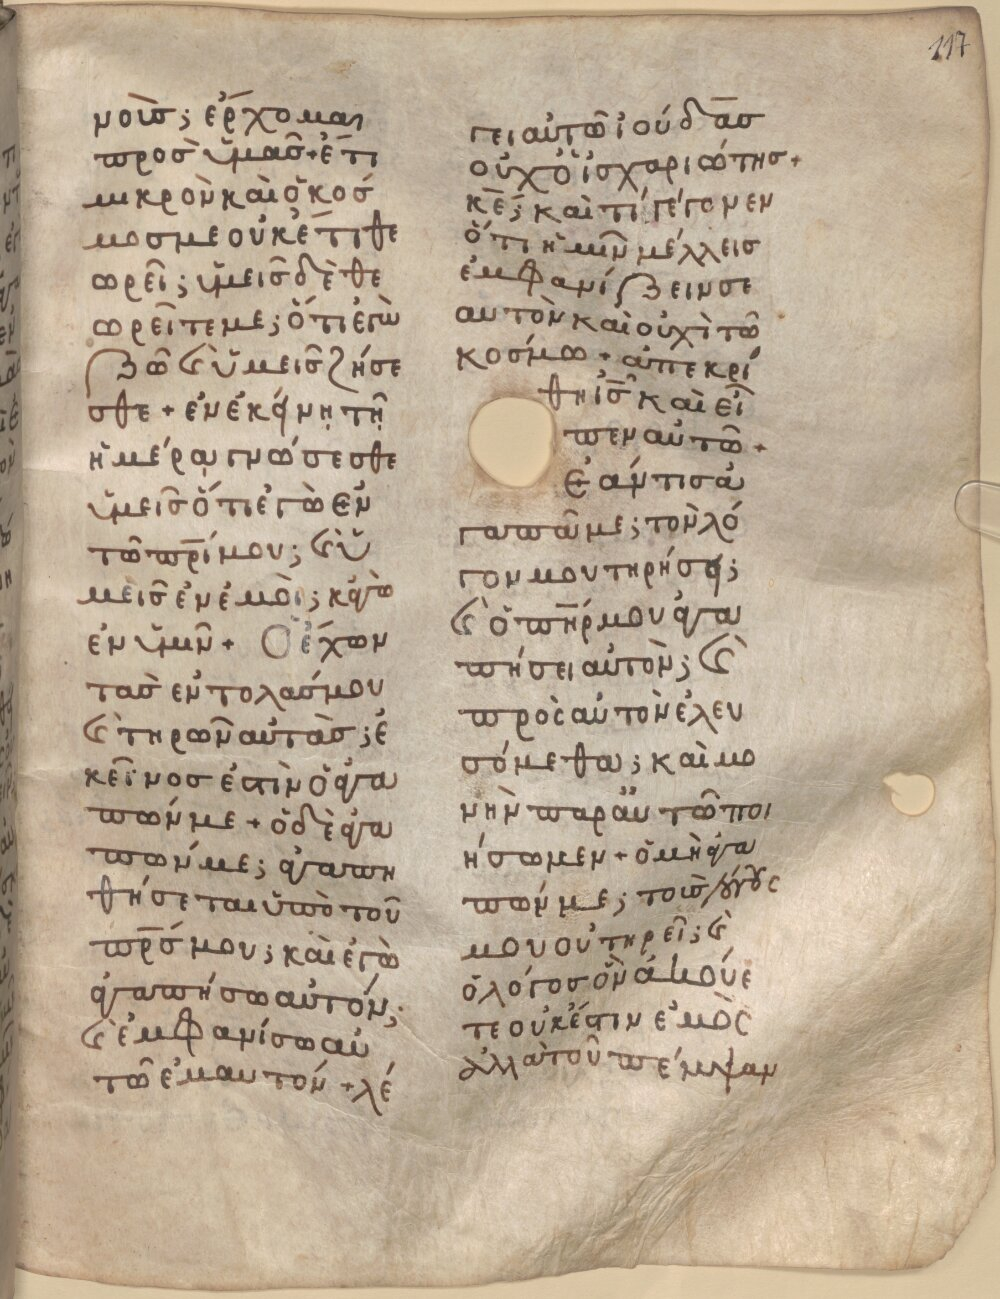 117
νοῦσ; ἔρχομαι
προσ ὑμᾶσ + ἔτι
μικρὸν καὶ ὁ κόσ
μοσ με οὐκέτι θε
ωρεῖ; ὑμεῖσ δὲ θε
ωρεῖτε με; ὅτι ἐγὼ
ζῶ ϗ ὑμεῖσ ζήσε
σθε + ἐν ἐκείνη τῆ
ἡμέρα γνώσεσθε
ὑμεῖσ ὅτι ἐγὼ ἐν
τῶ πρ̅ί μου; ϗ ὑ
μεῖσ ἐν ἐμοὶ; κἀγὼ
ἐν ὑμῖν + Ὁ ἔχων
τασ ἐντολάσ μου
ϗ τηρῶν αὐτὰσ; ἐ
κεῖνοσ ἐστὶν ὁ ἀγα
πῶν με + ὁ δὲ ἀγα
πῶν με; ἀγαπη
θήσεται ὑπὸ τοῦ
πρ̅σ μου; καὶ ἐγὼ
ἀγαπήσω αὐτόν;
ϗ ἐμφανίσω αὐ
τῶ ἐμαυτόν + λέ
γει αὐτῶ ἰούδασ
οὐχ ὁ ἰσχαριώτησ +
κ̅ε; καὶ τί γέγονεν
ὅτι ἡμῖν μέλλεισ
ἐμφανίζειν σε
αυτὸν καὶ οὐχὶ τῶ
κόσμω + ἀπεκρί
θη ι̅σ καὶ εἶ
πεν αὐτῶ +
ἐάν τισ ἀ
γαπᾶ με; τὸν λό
γον μου τηρήσει;
ϗ ὁ πη̅ρ μου ἀγα
πήσει αὐτὸν; ϗ
πρὸς αὐτὸν ἐλευ
σόμεθα; καὶ μο
νὴν παρ αὐτῶ ποι
ήσωμεν + ὁ μὴ ἀγα
πῶν με; τοὺσ λόγους
μου οὐ τηρεῖ; ϗ
ὁ λόγοσ ὃν ἀκούε
τε οὐκ ἔστιν ἐμὸς
ἀλλὰ τοῦ πέμψαν